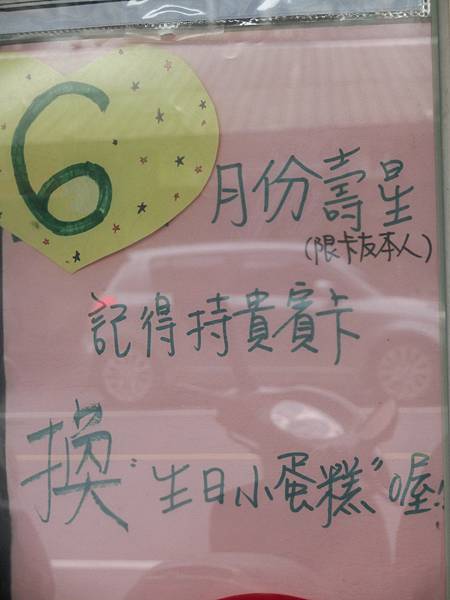 6月份壽星
(限卡友本人)
記得持貴賓卡
換"生日小蛋糕"喔!!